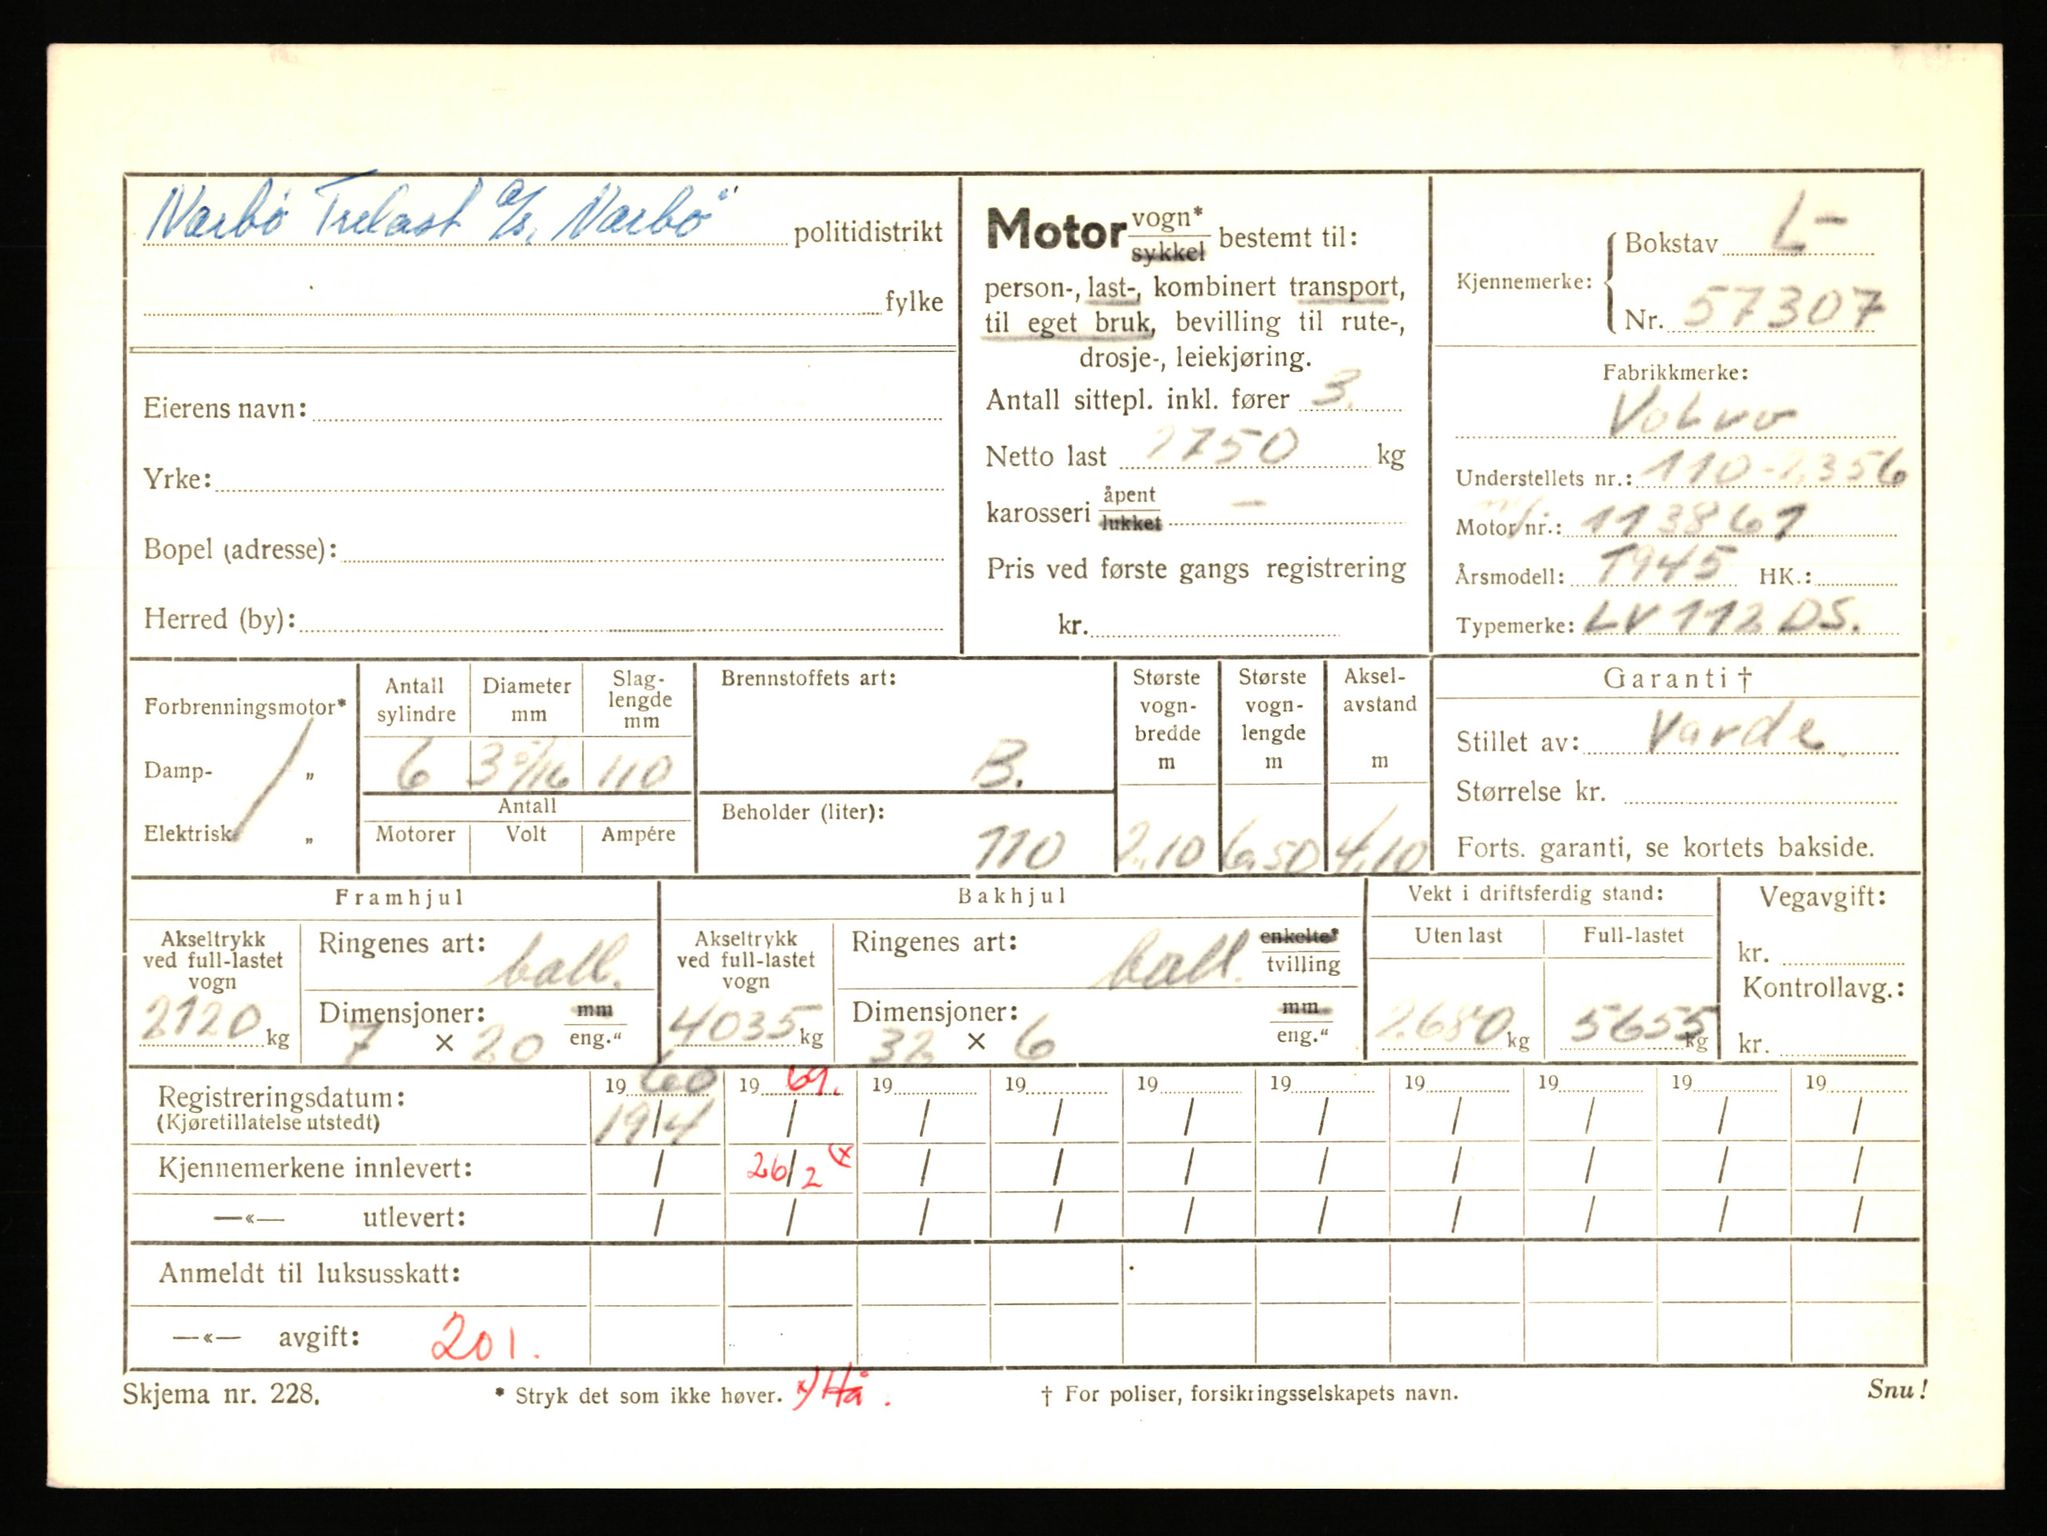 Nærbö Trelast a/s, Nærbö politidistrikt
fylke
Eierens navn:
Yrke:
Bopel (adresse):
Herred (by):
Motor vogn* sykkel bestemt til:
person-, last-, kombinert transport,
til eget bruk, bevilling til rute-,
drosje-, leiekjøring.
Antall sittepl. inkl. fører 3.
Netto last 2750 kg
karosseri åpent lukket —
Pris ved første gangs registrering
kr.
Kjennemerke: Bokstav L-
Nr. 57307
Fabrikkmerke:
Volvo
Understellets nr.: 110-2356
Motor nr.: 113861
Årsmodell: 1945 HK.:
Typemerke: LV 112 DS.
Forbrenningsmotor*
Damp- "
Elektrisk "
Antall sylindre
Diameter mm
Slag-lengde mm
6 3 5/16 110
Antall
Motorer Volt Ampére
Brennstoffets art:
B.
Beholder (liter):
110
Største vogn-bredde m
2.10
Største vogn-lengde m
6,50
Aksel-avstand m
4,10
Garanti †
Stillet av: Varde
Størrelse kr.
Forts. garanti, se kortets bakside.
Framhjul
Akseltrykk ved full-lastet vogn
2120 kg
Ringenes art: ball.
Dimensjoner: mm
7 × 20 eng."
Bakhjul
Akseltrykk ved full-lastet vogn
4035 kg
Ringenes art: ball. enkelte* tvilling
Dimensjoner: mm
32 × 6 eng."
Vekt i driftsferdig stand:
Uten last Full-lastet
2680 kg 5655 kg
Vegavgift:
kr.
Kontrollavg.:
kr.
19 60 19 61. 19 19 19 19 19 19 19 19
Registreringsdatum: 19/4 / / / / / / / / /
(Kjøretillatelse utstedt)
Kjennemerkene innlevert: / 26/2 x) / / / / / / / /
—«— utlevert: / / / / / / / / / /
Anmeldt til luksusskatt:
—«— avgift: 201.
Skjema nr. 228.
* Stryk det som ikke høver. x) Hå.
† For poliser, forsikringsselskapets navn.
Snu!